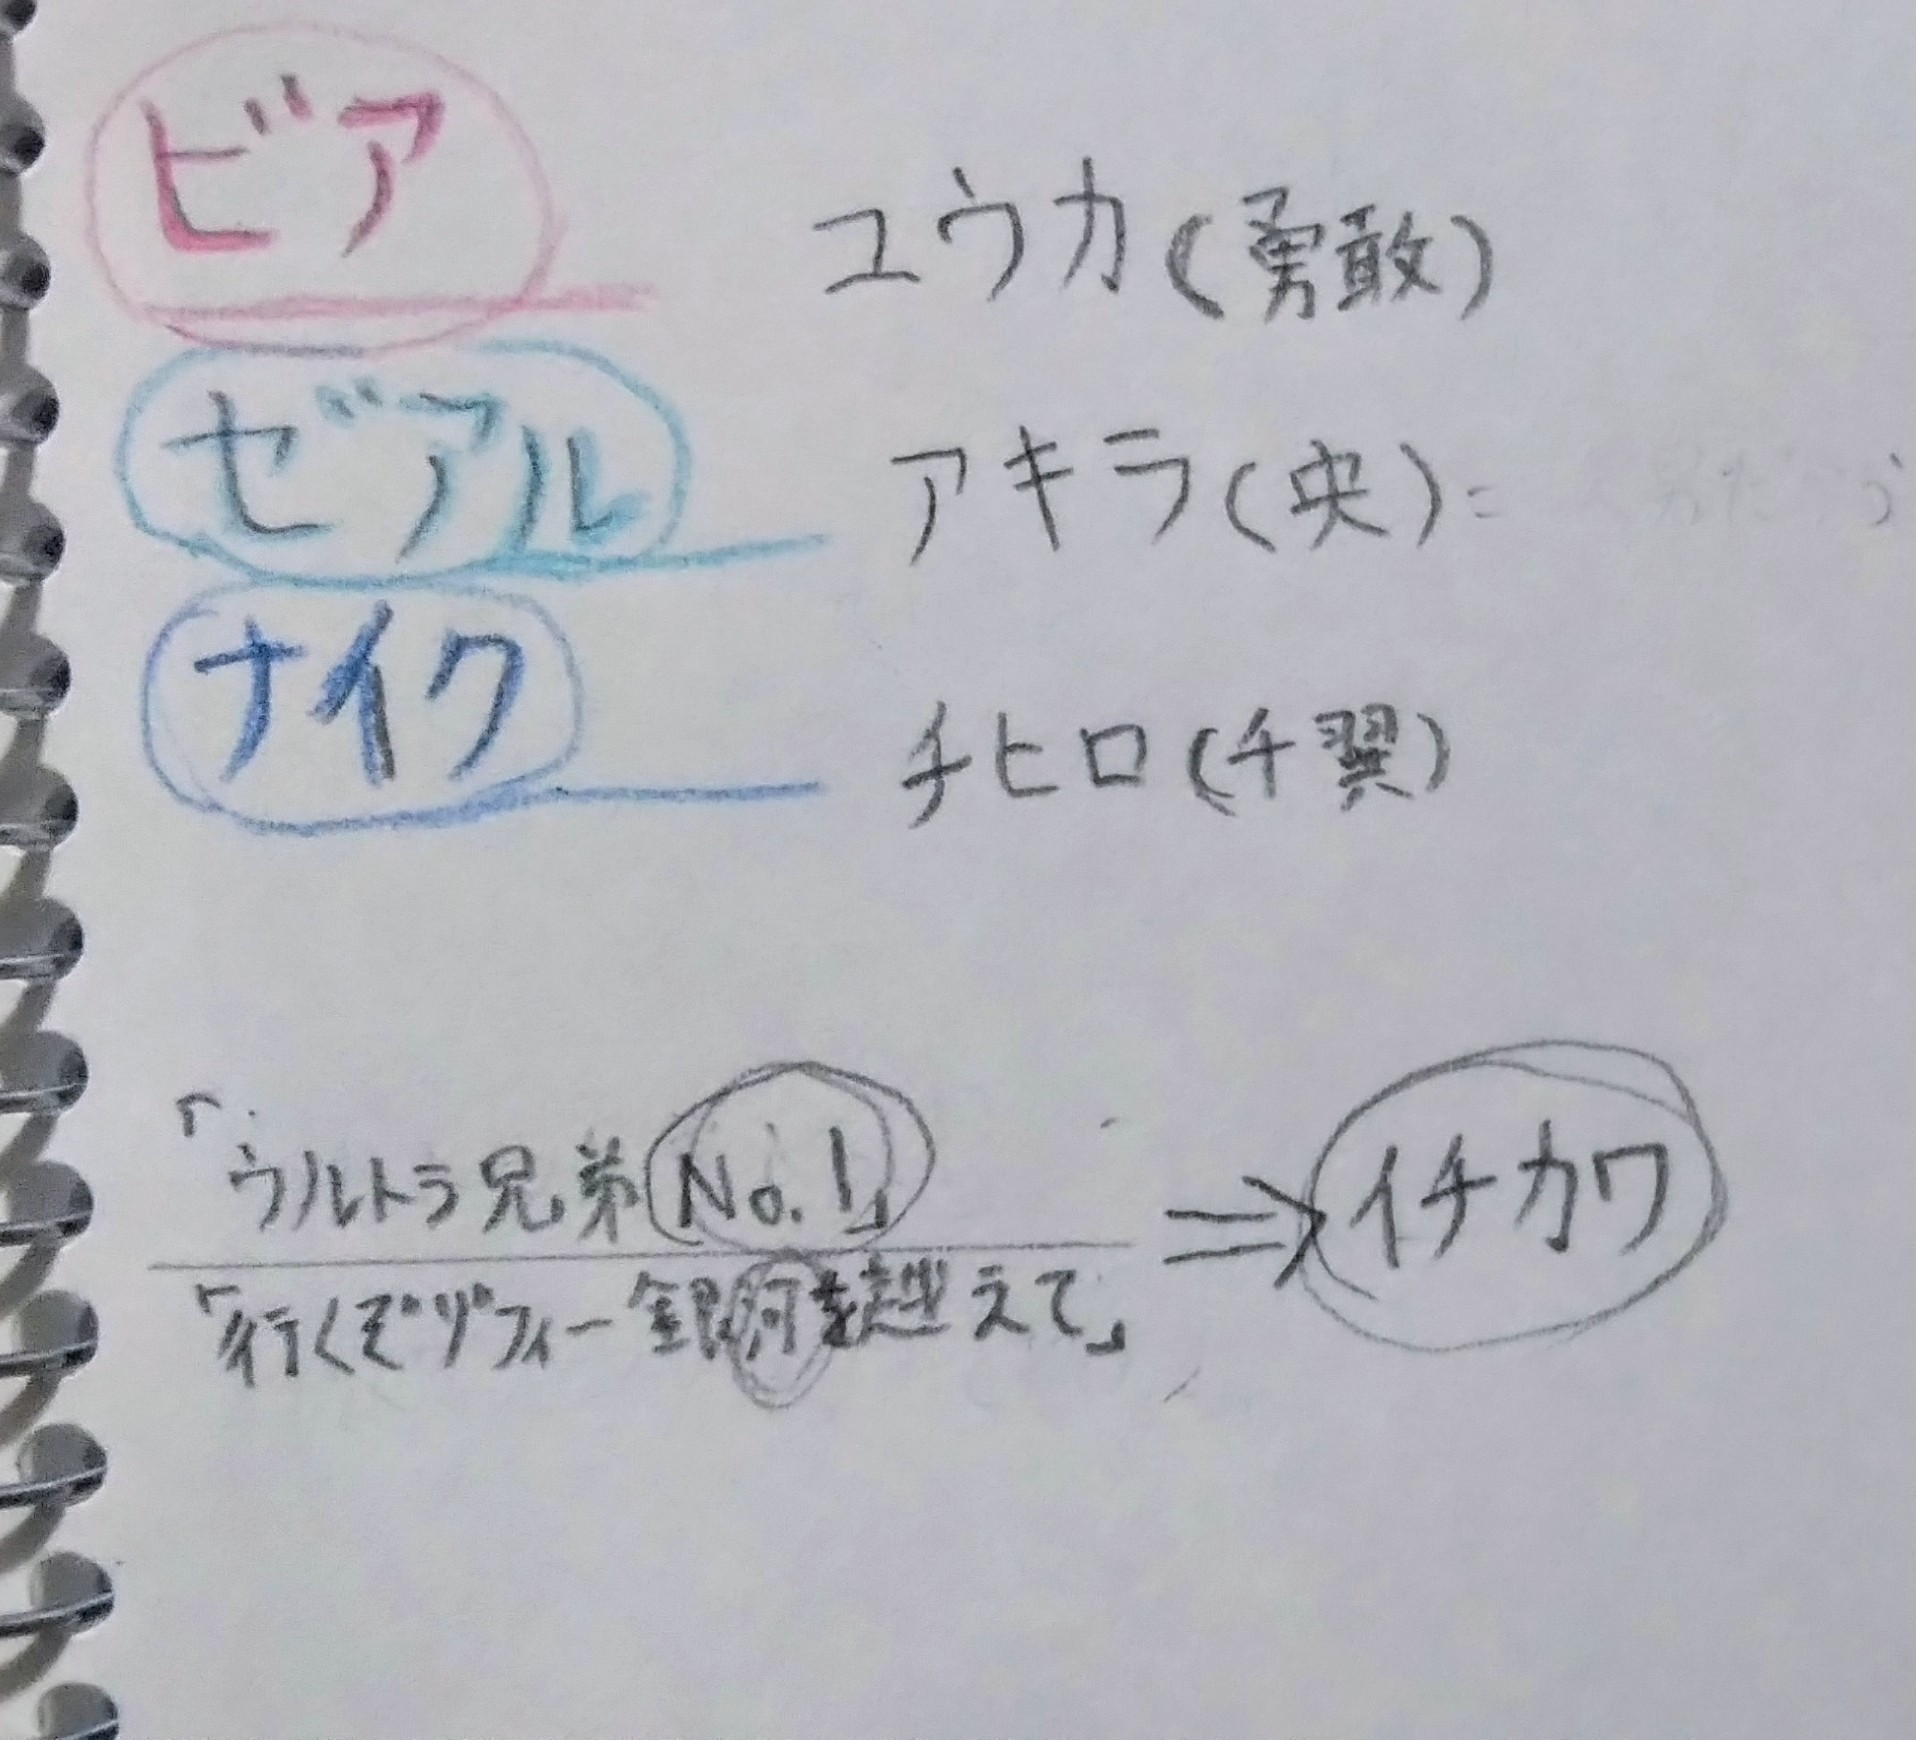 ビア ユウカ(勇敢)
ゼアル アキラ(央)=
ナイク チヒロ(千翼)
「ウルトラ兄弟No.1」 ⇒ イチカワ
「行くぞゾフィー銀河を越えて」